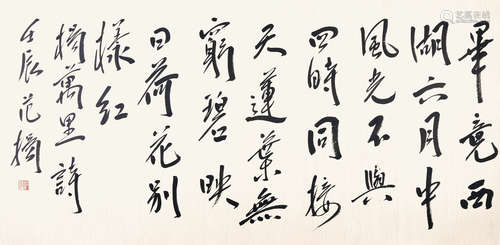 畢竟西
湖六月中
風光不與
四時同接
天蓮葉無
窮碧映
日荷花别
樣紅
楊萬里詩
壬辰范楊